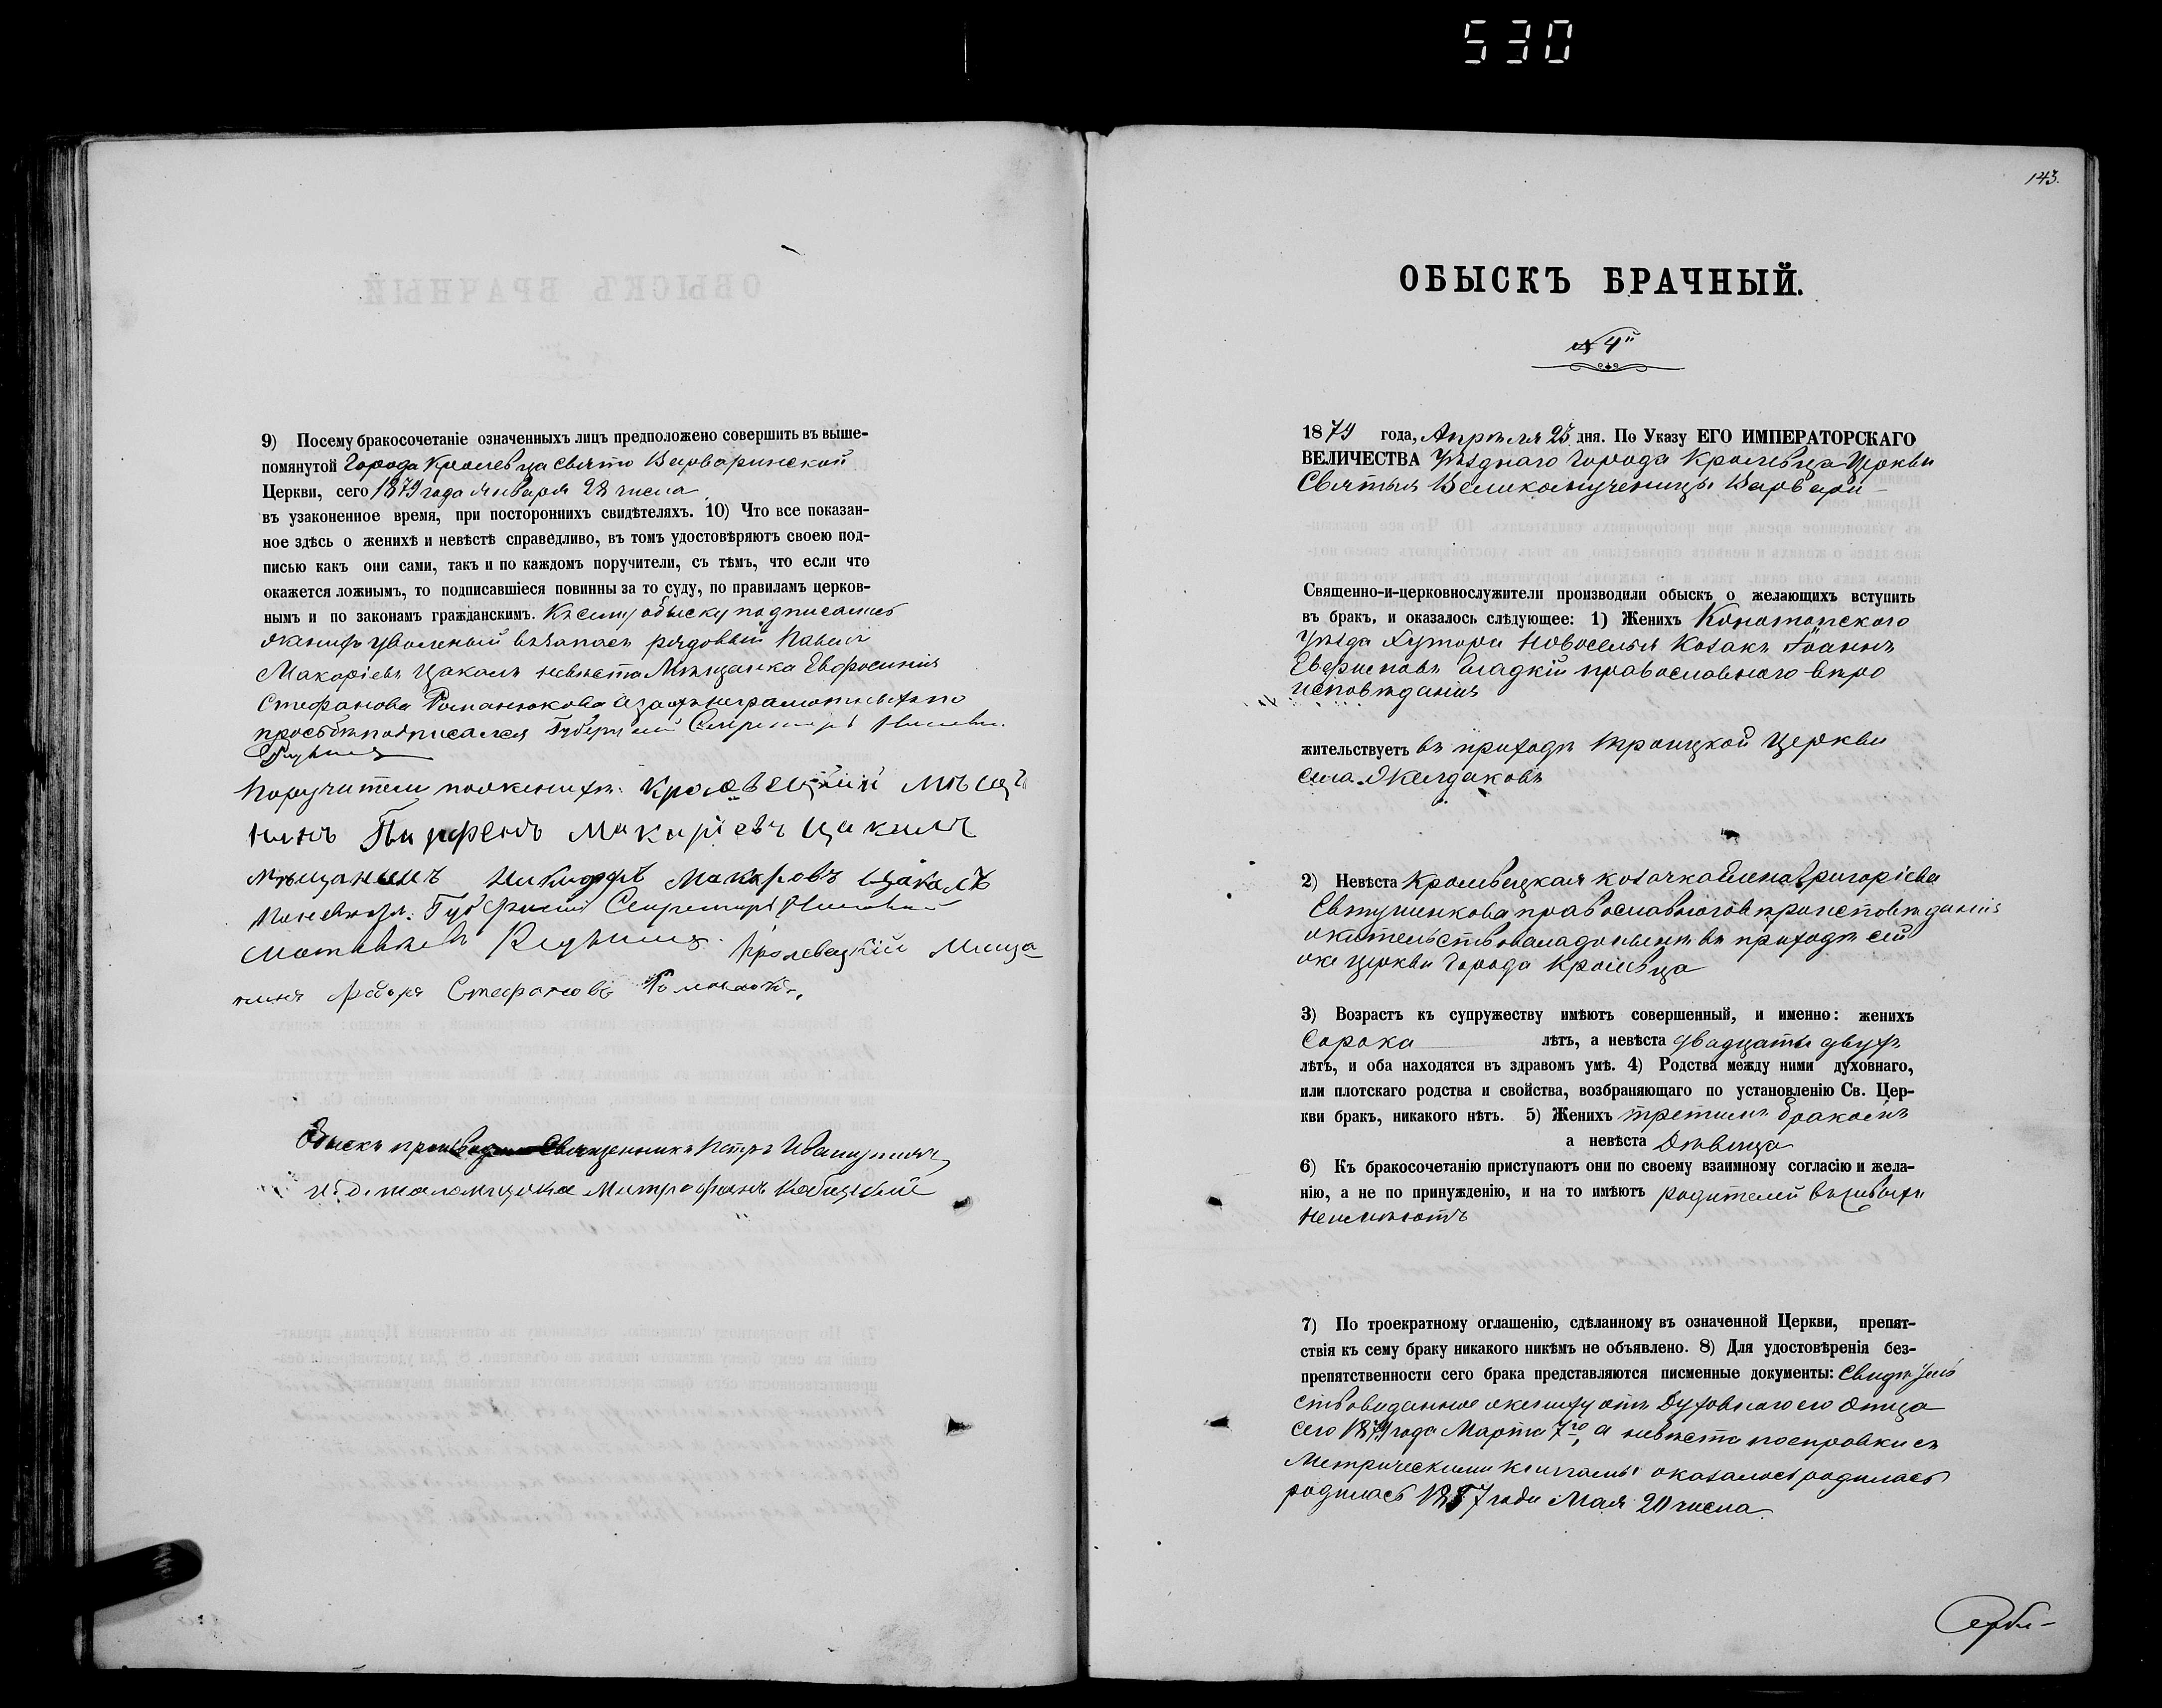 530
9) Посему бракосочетаніе означенныхъ лицъ предположено совершить въ выше-
помянутой Города Кролевца Свято Варваринской
Церкви, сего 1879 года Января 28 числа
въ узаконенное время, при постороннихъ свидѣтеляхъ. 10) Что все показан-
ное здѣсь о женихѣ и невѣстѣ справедливо, въ томъ удостовѣряютъ своею под-
писью какъ они сами, такъ и по каждомъ поручители, съ тѣмъ, что если что
окажется ложнымъ, то подписавшіеся повинны за то суду, по правиламъ церков-
нымъ и по законамъ гражданскимъ. Къ сему обыску подписались
женихъ уволенный въ запасъ рядовый Павелъ
Макаріевъ Цакалъ невѣста Мѣщанка Евфросинія
Стефанова Романюкова а за ихъ неграмотныхъ по
просьбѣ подписался Губернскій Секретарь
Поручители по женихѣ: Кролевецкій Мѣща
нинъ Парфенъ Макаріевъ Цакалъ
мѣщанинъ Никифоръ Макаровъ Цакалъ
По невѣстѣ: Губернскій Секретарь
Кролевецкій Мѣща
нинъ Стефановъ
Обыскъ производили Священникъ Петръ Ивашутичъ
и. д. псаломщика Митрофанъ Кабицкій
143.
ОБЫСКЪ БРАЧНЫЙ.
№ 4й
1879 года, Апрѣля 25 дня. По Указу ЕГО ИМПЕРАТОРСКАГО
ВЕЛИЧЕСТВА Уѣзднаго Города Кролевца Церкви
Святыя Великомученицы Варвары
Священно-и-церковнослужители производили обыскъ о желающихъ вступить
въ бракъ, и оказалось слѣдующее: 1) Женихъ Конотопского
Уѣзда Хутора Новоселья Козакъ Іоаннъ
Гладкій православного вѣро
исповѣданія
жительствуетъ въ приходѣ Троицкой Церкви
села Жолдаковъ
2) Невѣста Кролевецкая козачка Елена Григоріева
Евтушенкова православного вѣроисповѣданія
жительствовала донынѣ въ приходѣ сей
же церкви Города Кролевца
3) Возрастъ къ супружеству имѣютъ совершенный, и именно: женихъ
Сорока лѣтъ, а невѣста двадцати двухъ
лѣтъ, и оба находятся въ здравомъ умѣ. 4) Родства между ними духовнаго,
или плотскаго родства и свойства, возбраняющаго по установленію Св. Цер-
кви бракъ, никакого нѣтъ. 5) Женихъ третимъ бракомъ
а невѣста Дѣвица
6) Къ бракосочетанію приступаютъ они по своему взаимному согласію и жела-
нію, а не по принужденію, и на то имѣютъ родителей въ живыхъ
неимѣютъ
7) По троекратному оглашенію, сдѣланному въ означенной Церкви, препят-
ствія къ сему браку никакого никѣмъ не объявлено. 8) Для удостовѣренія без-
препятственности сего брака представляются писменные документы: Свидѣтель
ство виданное жениху отъ Духовного его Отца
сего 1879 года Марта 7го, а невѣста по справки съ
Метрическими книгами оказалось родилась
родилась 1857 года Мая 20 числа